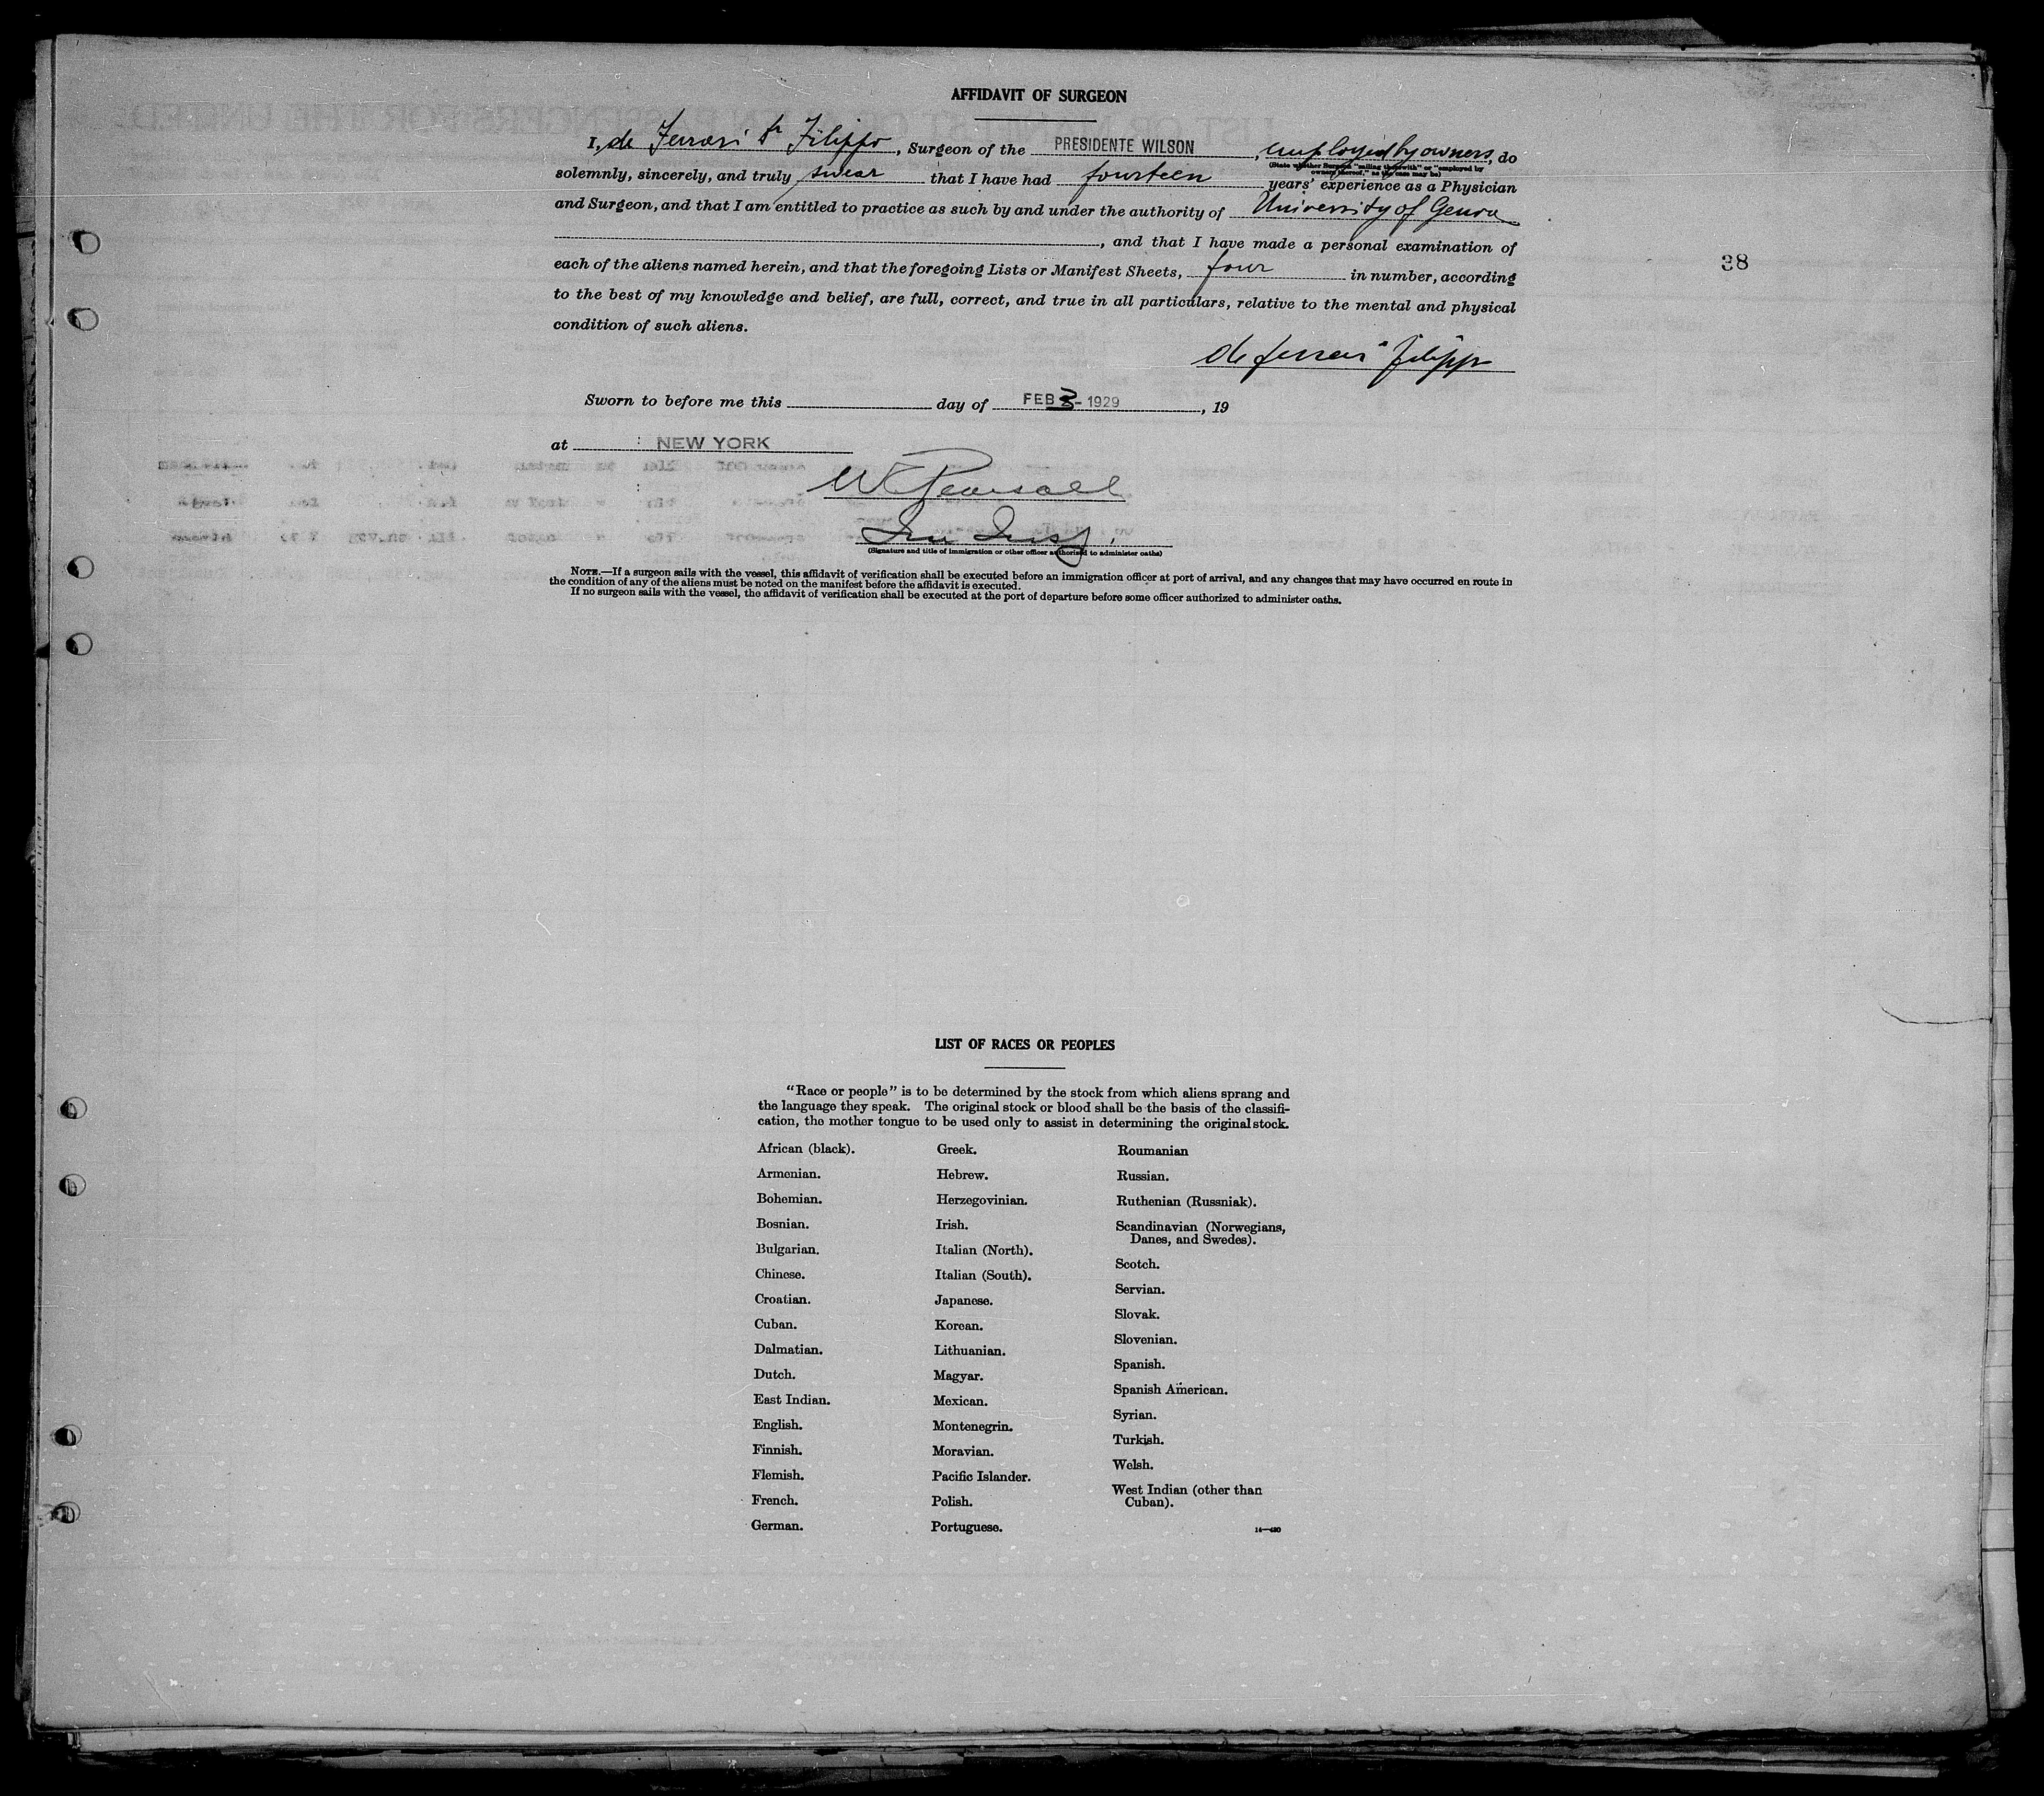 AFFIDAVIT OF SURGEON
I, de Ferrari dr Filippo, Surgeon of the PRESIDENTE WILSON, employed by owners, do
(State whether Surgeon "sailing therewith" or "employed by
owners thereof," as the case may be)
solemnly, sincerely, and truly swear that I have had fourteen years' experience as a Physician
and Surgeon, and that I am entitled to practice as such by and under the authority of University of Genoa
, and that I have made a personal examination of
38
each of the aliens named herein, and that the foregoing Lists or Manifest Sheets, four in number, according
to the best of my knowledge and belief, are full, correct, and true in all particulars, relative to the mental and physical
condition of such aliens.
de Ferrari Filippo
Sworn to before me this day of FEB 3 - 1929, 19
at NEW YORK
W Pearsall
(Signature and title of immigration or other officer authorized to administer oaths)
NOTE.—If a surgeon sails with the vessel, this affidavit of verification shall be executed before an immigration officer at port of arrival, and any changes that may have occurred en route in
the condition of any of the aliens must be noted on the manifest before the affidavit is executed.
If no surgeon sails with the vessel, the affidavit of verification shall be executed at the port of departure before some officer authorized to administer oaths.
LIST OF RACES OR PEOPLES
"Race or people" is to be determined by the stock from which aliens sprang and
the language they speak. The original stock or blood shall be the basis of the classifi-
cation, the mother tongue to be used only to assist in determining the original stock.
African (black).
Armenian.
Bohemian.
Bosnian.
Bulgarian.
Chinese.
Croatian.
Cuban.
Dalmatian.
Dutch.
East Indian.
English.
Finnish.
Flemish.
French.
German.
Greek.
Hebrew.
Herzegovinian.
Irish.
Italian (North).
Italian (South).
Japanese.
Korean.
Lithuanian.
Magyar.
Mexican.
Montenegrin.
Moravian.
Pacific Islander.
Polish.
Portuguese.
Roumanian
Russian.
Ruthenian (Russniak).
Scandinavian (Norwegians,
Danes, and Swedes).
Scotch.
Servian.
Slovak.
Slovenian.
Spanish.
Spanish American.
Syrian.
Turkish.
Welsh.
West Indian (other than
Cuban).